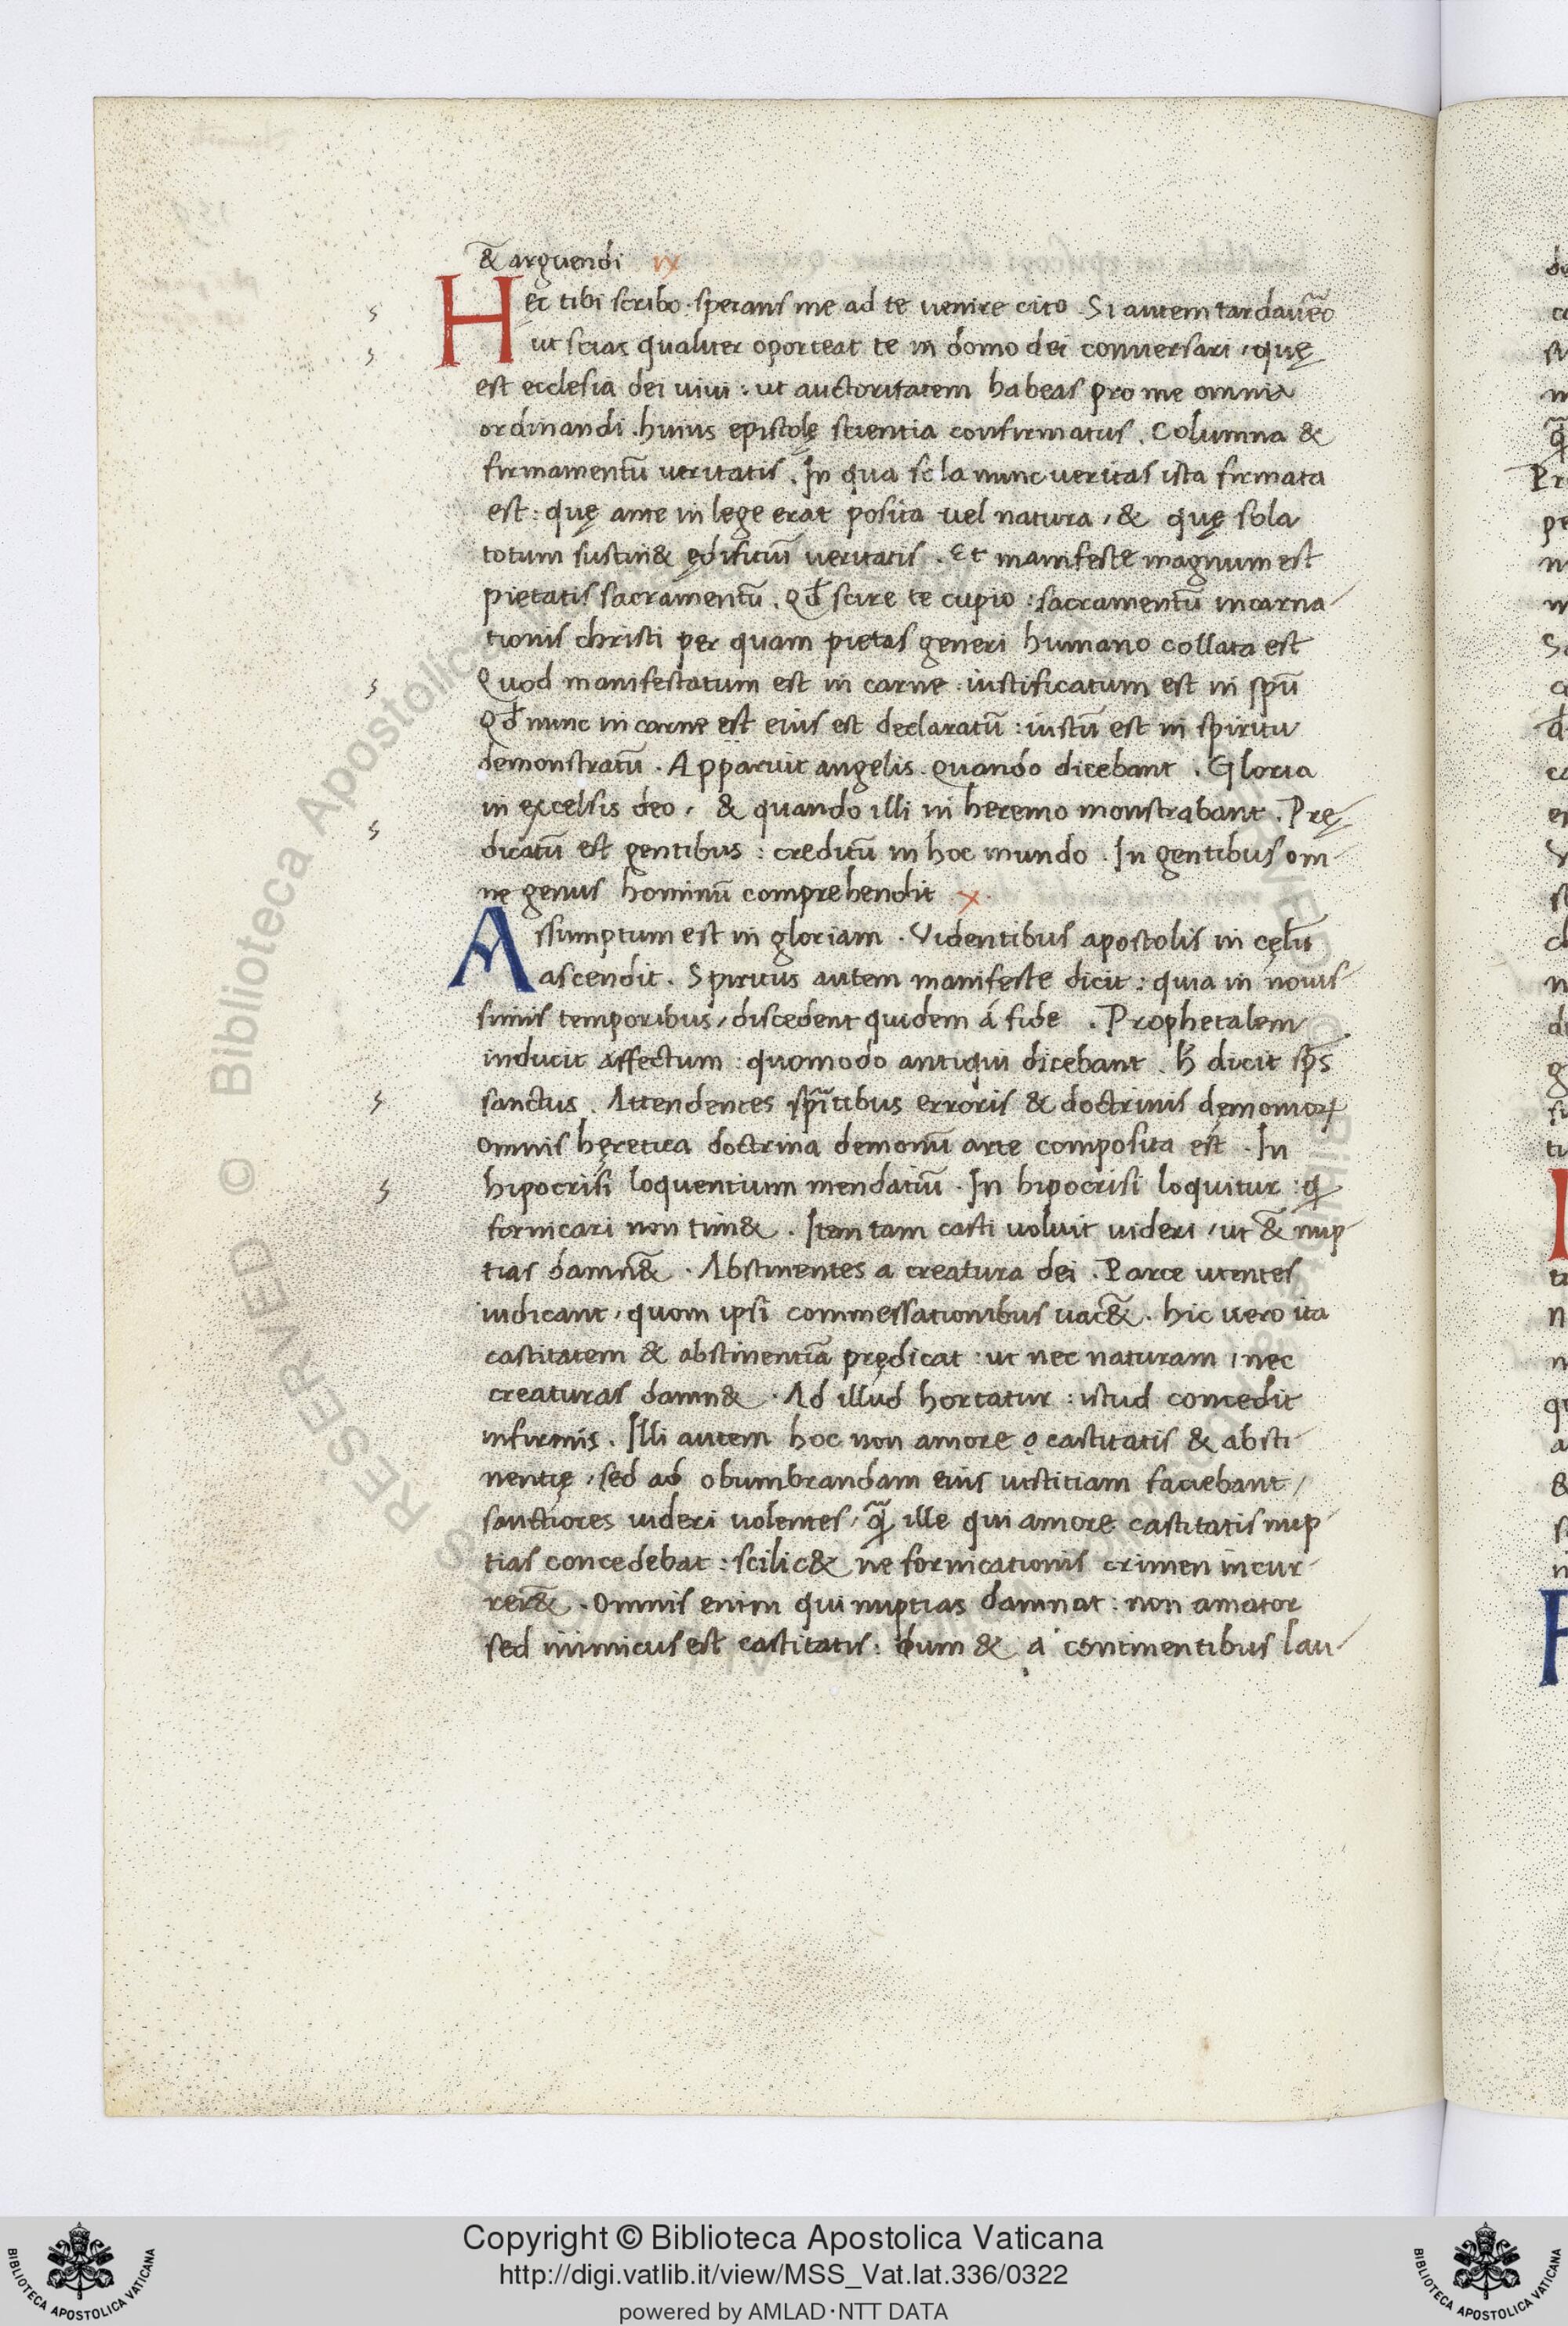 &̄ arguendi ıx
Hec tibi scribo · sperans me ad te venire cito Si autem tardau̅ero
ut scias qualiter oporteat te in domo dei conuersari / quę
est ecclesia dei uiui : ut auctoritatem habeas pro me omnia
ordinandi . huius epistolę scientia confirmatus . Columna &
firmamentū veritatis . In qua sola nunc veritas ista firmata
est : quę ante in lege erat posita vel natura / & quę sola
totum sustin& ędificiū veritatis . Et manifeste magnum est
pietatis sacramentū . Qđ scire te cupio : sacramentū incarna-
tionis christi per quam pietas generi humano collata est
Quod manifestatum est in carne · iustificatum est in spū
Qđ nunc in carne est eius est declaratū : iustū est in spiritu
demonstratū . Apparuit angelis . Quando dicebant . Gloria
in excelsis deo / & quando illi in heremo monstrabant . Prę-
dicatū est gentibus : creditū in hoc mundo . In gentibus om-
ne genus hominū comprehendit x ·
Assumptum est in gloriam · Videntibus apostolis in cęlū
ascendit . Spiritus autem manifeste dicit : quia in nouis-
simis temporibus / discedent quidem á fide . Prophetalem
inducit affectum : quomodo antiqui dicebant . h̄ dicit sp̄s
sanctus . Attendentes spīritibus erroris & doctrinis dęmonioꝝ
Omnis hęretica doctrina demonū arte composita est . In
hipocrisi loquentium mendatiū · In hipocrisi loquitur : q̄
fornicari non tim& . Item tam casti voluit uideri / ut &̄ nup-
tias damn&̄ . Abstinentes a creatura dei . Parce utentes
iudicant / quom ipsi commessationibus uac&̄ . hic uero ita
castitatem & abstinentiā prędicat : ut nec naturam / nec
creaturas damn& . Ad illud hortatur : istud concedit
infirmis . Illi autem hoc non amore castitatis & absti-
nentię / sed ad obumbrandam eius iustitiam faciebant /
sanctiores uideri uolentes / q̄ ille qui amore castitatis nup-
tias concedebat : scilic& ne fornicationis crimen incur-
rer&̄ . Omnis enim qui nuptias damnat : non amator
sed inimicus est castitatis : dum & a continentibus lau-
Copyright © Biblioteca Apostolica Vaticana
http://digi.vatlib.it/view/MSS_Vat.lat.336/0322
powered by AMLAD·NTT DATA